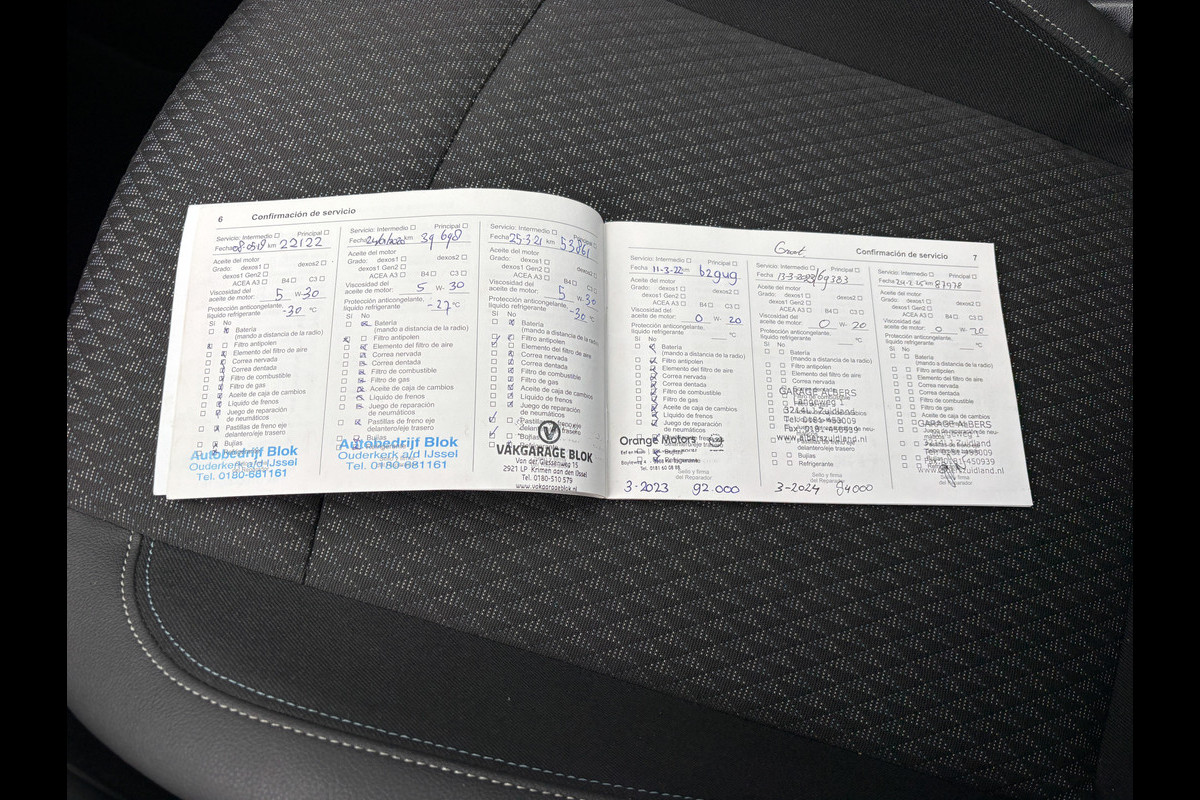 6 Confirmación de servicio
Servicio: Intermedio Principal
Fecha km 22122
Aceite del motor
Grado: dexos1 dexos2
dexos1 Gen2
ACEA A3 B4 C3
Viscosidad del
aceite de motor: 5 W- 30
Protección anticongelante,
líquido refrigerante -30 °C
Sí No
Batería
(mando a distancia de la radio)
Filtro antipolen
Elemento del filtro de aire
Correa nervada
Correa dentada
Filtro de combustible
Filtro de gas
Aceite de caja de cambios
Líquido de frenos
Juego de reparación
de neumáticos
Pastillas de freno eje
delantero/eje trasero
Bujías
Autobedrijf Blok
Ouderkerk a/d IJssel
Tel. 0180-681161
Servicio: Intermedio Principal
Fecha km 39698
Aceite del motor
Grado: dexos1 dexos2
dexos1 Gen2
ACEA A3 B4 C3
Viscosidad del
aceite de motor: 5 W- 30
Protección anticongelante,
líquido refrigerante -27 °C
Sí No
Batería
(mando a distancia de la radio)
Filtro antipolen
Elemento del filtro de aire
Correa nervada
Correa dentada
Filtro de combustible
Filtro de gas
Aceite de caja de cambios
Líquido de frenos
Juego de reparación
de neumáticos
Pastillas de freno eje
delantero/eje trasero
Bujías
Autobedrijf Blok
Ouderkerk a/d IJssel
Tel. 0180-681161
Servicio: Intermedio Principal
Fecha 25-3-21 km 53861
Aceite del motor
Grado: dexos1 dexos2
dexos1 Gen2
ACEA A3 B4 C3
Viscosidad del
aceite de motor: 5 W- 30
Protección anticongelante,
líquido refrigerante -30 °C
Sí No
Batería
(mando a distancia de la radio)
Filtro antipolen
Elemento del filtro de aire
Correa nervada
Correa dentada
Filtro de combustible
Filtro de gas
Aceite de caja de cambios
Líquido de frenos
Juego de reparación
de neumáticos
Pastillas de freno eje
delantero/eje trasero
Bujías
VAKGARAGE BLOK
Van der Giessenweg 15
2921 LP Krimpen aan den IJssel
Tel. 0180-510 579
www.vakgarageblok.nl
Groot Confirmación de servicio 7
Servicio: Intermedio Principal
Fecha 11-3-22 km
Aceite del motor
Grado: dexos1 dexos2
dexos1 Gen2
ACEA A3 B4 C3
Viscosidad del
aceite de motor: 0 W- 20
Protección anticongelante,
líquido refrigerante °C
Sí No
Batería
(mando a distancia de la radio)
Filtro antipolen
Elemento del filtro de aire
Correa nervada
Correa dentada
Filtro de combustible
Filtro de gas
Aceite de caja de cambios
Líquido de frenos
Juego de reparación
de neumáticos
Orange Motors
Refrigerante
Sello y firma
del Reparador
3-2023 92.000
Servicio: Intermedio Principal
Fecha 69383
Aceite del motor
Grado: dexos1 dexos2
dexos1 Gen2
ACEA A3 B4 C3
Viscosidad del
aceite de motor: 0 W- 20
Protección anticongelante,
líquido refrigerante °C
Sí No
Batería
(mando a distancia de la radio)
Filtro antipolen
Elemento del filtro de aire
Correa nervada
GARAGE ALBERS
3214LJ Zuidland
Tel. 0181-459009
Fax. 0181-450939
www.alberszuidland.nl
delantero/eje trasero
Bujías
Refrigerante
Sello y firma
del Reparador
3-2024 94000
Servicio: Intermedio Principal
Fecha 24-2-25 km 87978
Aceite del motor
Grado: dexos1 dexos2
dexos1 Gen2
ACEA A3 B4 C3
Viscosidad del
aceite de motor: 0 W- 20
Protección anticongelante,
líquido refrigerante °C
Sí No
Batería
(mando a distancia de la radio)
Filtro antipolen
Elemento del filtro de aire
Correa nervada
Correa dentada
Filtro de combustible
Filtro de gas
Aceite de caja de cambios
GARAGE ALBERS
del Reparador